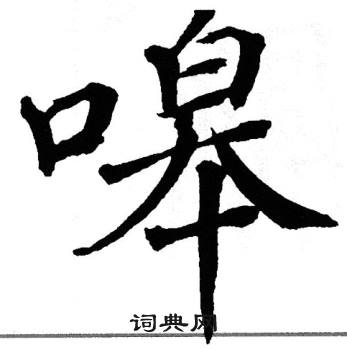 嗥
词典网